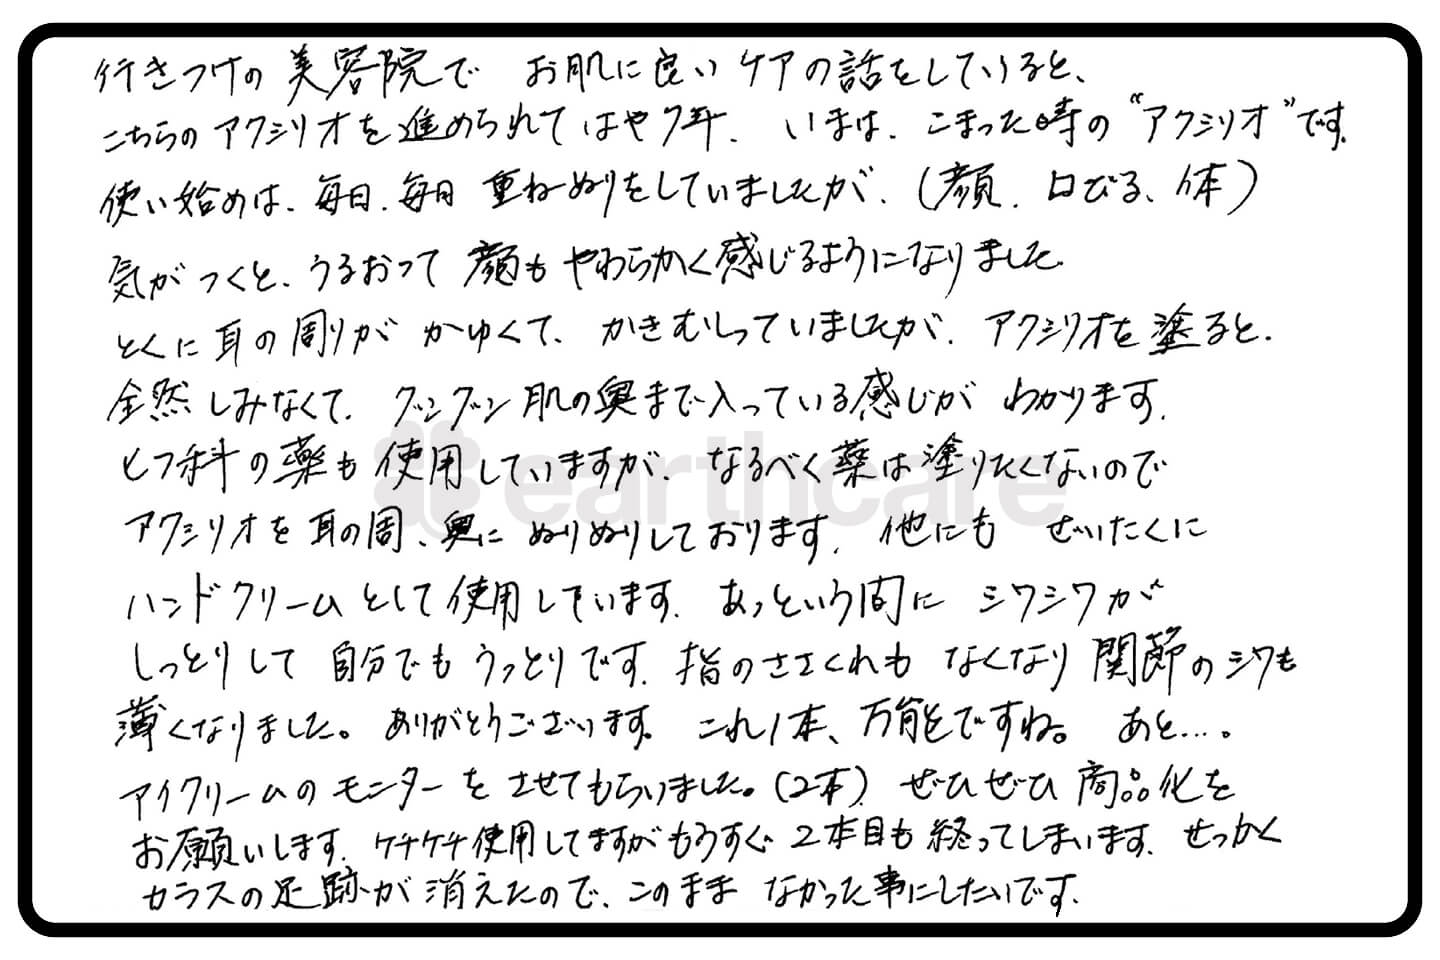 行きつけの美容院で お肌に良いケアの話をしていると、
こちらのアクシリオを進められてはや7年、いまは、こまった時の"アクシリオ"です。
使い始めは、毎日、毎日 重ねぬりをしていましたが、(顔、口びる、体)
気がつくと、うるおって 顔もやわらかく感じるようになりました。
とくに耳の周りが かゆくて、かきむしっていましたが、アクシリオを塗ると、
全然しみなくて、グングン肌の奥まで入っている感じが わかります。
ヒフ科の薬も使用していますが、なるべく薬は塗りたくないので
アクシリオを耳の周、奥に ぬりぬりしております。他にも ぜいたくに
ハンドクリームとして使用しています。あっという間に シワシワが
しっとりして 自分でもうっとりです。指のささくれも なくなり関節のシワも
薄くなりました。ありがとうございます。これ1本、万能ですね。 あと…。
アイクリームのモニターを させてもらいました。(2本) ぜひぜひ 商品化を
お願いします。ケチケチ使用してますがもうすぐ 2本目も終ってしまいます。せっかく
カラスの足跡が消えたので、このまま なかった事にしたいです。
earthcare